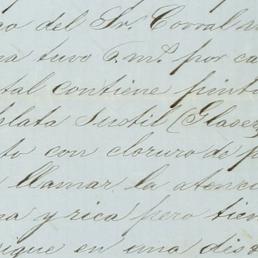 so del Sr. Corral
na tuvo 6 m.s por ca
tal contiene pinta
plata Sustil (Glaser
to con cloruro de p
llamar la atenci
na y rica pero tien
sigue en una dist